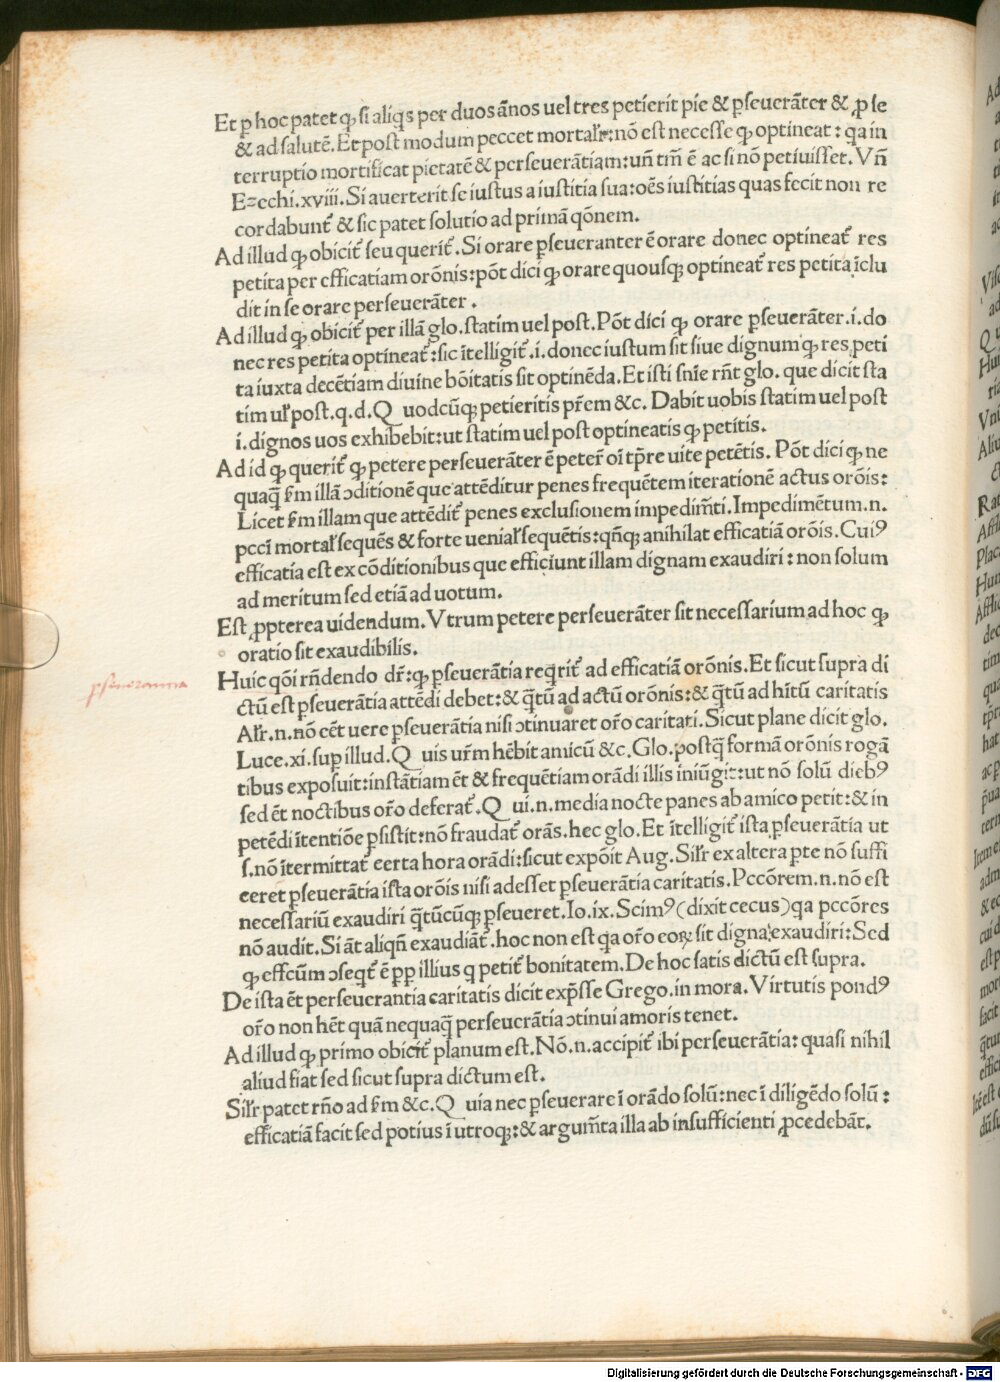 Et ꝑ hoc patet ꝙ si aliꝗs per duos ãnos uel tres petierit pie & ꝑseuerãter & ꝓ se
& ad salutẽ. Et post modum peccet mortalr: nõ est necesse ꝙ optineat: ꝗa in
terruptio mortificat pietatẽ & perseuerãtiam: uñ tm̃ ẽ ac si nõ petiuisset. Vñ
Ezechi. xviii. Si auerterit se iustus a iustitia sua: oẽs iustitias quas fecit non re
cordabunt̃ & sic patet solutio ad primã qõnem.
Ad illud ꝙ obicit̃ seu querit̃. Si orare ꝑseueranter ẽ orare donec optineat̃ res
petita per efficatiam orõnis: põt dici ꝙ orare quousqꝫ optineat̃ res petita ĩclu
dit in se orare perseuerãter.
Ad illud ꝙ obicit̃ per illã glo. statim uel post. Põt dici ꝙ orare ꝑseuerãter .i. do
nec res petita optineat̃: sic ĩtelligit̃ .i. donec iustum sit siue dignum ꝙ res peti
ta iuxta decẽtiam diuine bõitatis sit optinẽda. Et isti snĩe rñt glo. que dicit sta
tim ul̃ post. q.d. Quodcũqꝫ petieritis pr̃em &c. Dabit uobis statim uel post
i. dignos uos exhibebit: ut statim uel post optineatis ꝙ petitis.
Ad id ꝙ querit̃ ꝙ petere perseuerãter ẽ peter̃ oĩ tp̃re uite petẽtis. Põt dici ꝙ ne
quaq̃ s̃m illã ↄditionẽ que attẽditur penes frequẽtem iterationẽ actus orõis:
Licet s̃m illam que attẽdit̃ penes exclusionem impedim̃ti. Impedimẽtum .n.
pccĩ mortal̃ sequẽs & forte uenial̃ sequẽtis: qñqꝫ anihilat efficatiã orõis. Cuiꝰ
efficatia est ex cõditionibus que efficiunt illam dignam exaudiri: non solum
ad meritum sed etiã ad uotum.
Est ꝓpterea uidendum. Vtrum petere perseuerãter sit necessarium ad hoc ꝙ
oratio sit exaudibilis.
ꝑseuerantia
Huic qõi rñdendo dr̃: ꝙ ꝑseuerãtia reꝗrit̃ ad efficatiã orõnis. Et sicut supra di
ctũ est ꝑseuerãtia attẽdi debet: & q̃tũ ad actũ orõnis: & q̃tũ ad hĩtũ caritatis
Alr̃ .n. nõ cẽt uere ꝑseuerãtia nisi ↄtinuaret or̃o caritati. Sicut plane dicit glo.
Luce. xi. suꝑ illud. Quis ur̃m hẽbit amicũ &c. Glo. postq̃ formã orõnis rogã
tibus exposuit: instãtiam ẽt & frequẽtiam orãdi illis iniũgit: ut nõ solũ diebꝰ
sed ẽt noctibus or̃o deferat̃. Qui .n. media nocte panes ab amico petit: & in
petẽdi ĩtentiõe ꝑsistit: nõ fraudat̃ orãs. hec glo. Et ĩtelligit̃ ista ꝑseuerãtia ut
s. nõ ĩtermittat̃ certa hora orãdi: sicut expõit Aug. Silr̃ ex altera ꝑte nõ suffi
ceret ꝑseuerãtia ista orõis nisi adesset ꝑseuerãtia caritatis. Pccõrem .n. nõ est
necessariũ exaudiri q̃tũcũqꝫ ꝑseueret. Io. ix. Scimꝰ (dixit cecus) ꝗa pccõres
nõ audit. Si ãt aliqñ exaudiãt̃. hoc non est ꝗa or̃o eoꝝ sit digna exaudiri: Sed
ꝙ effcũm ↄseqt̃ ẽ ꝓꝑ illius q petit̃ bonitatem. De hoc satis dictũ est supra.
De ista ẽt perseuerantia caritatis dicit exp̃sse Grego. in mora. Virtutis pondꝰ
or̃o non hẽt quã nequaq̃ perseuerãtia ↄtinui amoris tenet.
Ad illud ꝙ primo obicit̃ planum est. Nõ .n. accipit̃ ibi perseuerãtia: quasi nihil
aliud fiat sed sicut supra dictum est.
Silr̃ patet rñõ ad s̃m &c. Quia nec ꝑseuerare ĩ orãdo solũ: nec ĩ diligẽdo solũ:
efficatiã facit sed potius ĩ utroqꝫ: & argum̃ta illa ab insufficienti ꝓcedebãt.
Digitalisierung gefördert durch die Deutsche Forschungsgemeinschaft - DFG